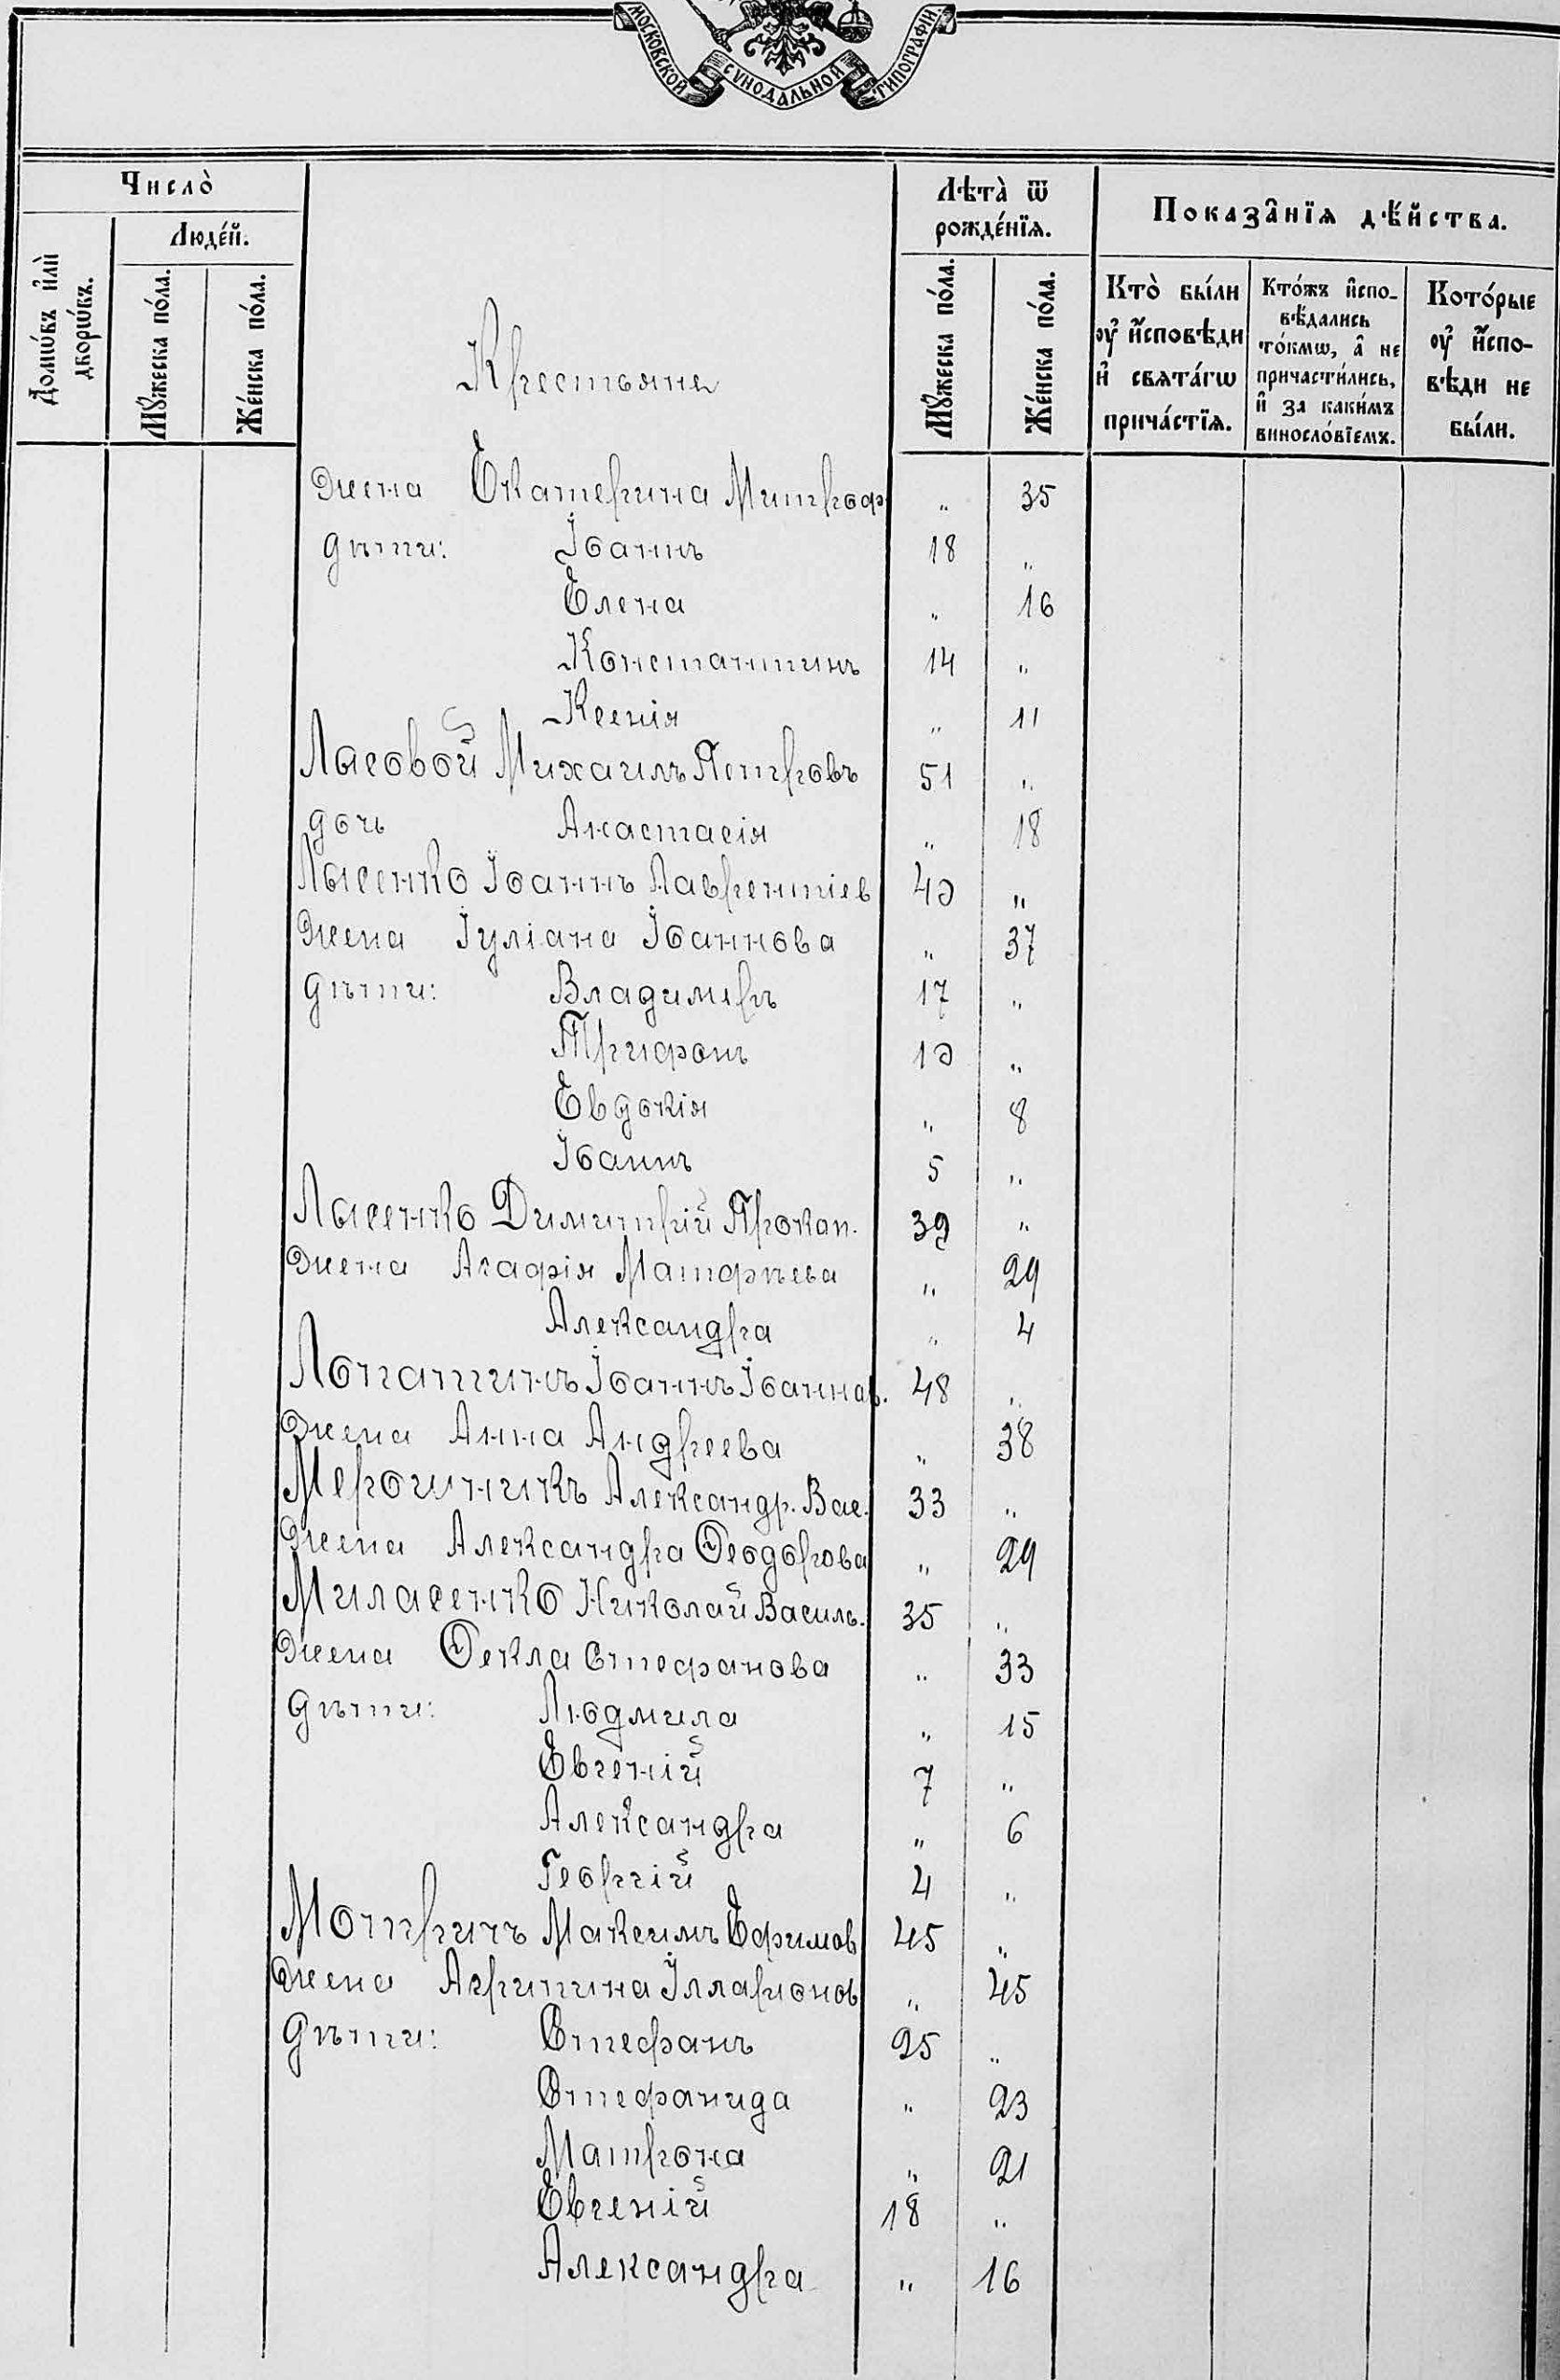 МОСКОВСКОЙ СУНОДАЛЬНОЙ ТИПОГРАФІИ.
Число̀
Людéй.
Домѡ́въ и҆лѝ дворѡ́въ.
Мꙋ́жеска по́ла.
Же́нска по́ла.
Крестьяне
Лѣта̀ ѿ рожде́нїѧ.
Мꙋ́жеска по́ла.
Же́нска по́ла.
Показа̑нїѧ дѣ́йства.
Кто̀ бы́ли ᲂу҆ и҆́сповѣди и҆ свѧта́гѡ прича́стїѧ.
Кто́жъ и҆спо-вѣ́дались то́кмѡ, а҆ не причасти́лись, и҆ за каки́мъ винослóвїемъ.
Кото́рые ᲂу҆ и҆́спо-вѣди не бы́ли.
жена Екатерина Митроф „ 35
дѣти: Іоаннъ 18 „
Елена „ 16
Константинъ 14 „
Ксенія „ 11
Лысовой Михаилъ Петровъ 51 „
дочь Анастасія „ 18
Лысенко Іоаннъ Лаврентіев 40 „
Жена Іуліана Іоаннова „ 37
дѣти: Владиміръ 17 „
Трифонъ 10 „
Евдокія „ 8
Іоаннъ 5 „
Лысенко Димитрій Прокоп. 39 „
Жена Агафія Матфѣева „ 29
Александра „ 4
Лопатинъ Іоаннъ Іоаннов. 48 „
Жена Анна Андреева „ 38
Мерошникъ Александр. Вас. 33 „
Жена Александра Ѳеодорова „ 29
Миласенко Николай Василь. 35 „
Жена Ѳекла Стефанова „ 33
дѣти: Людмила „ 15
Евгеній 7 „
Александра „ 6
Георгій 4 „
Мотричъ Максимъ Ефимов 45 „
Жена Агрипина Илларионов „ 45
Дѣти: Стефанъ 25 „
Стефанида „ 23
Матрона „ 21
Евгеній 18 „
Александра „ 16